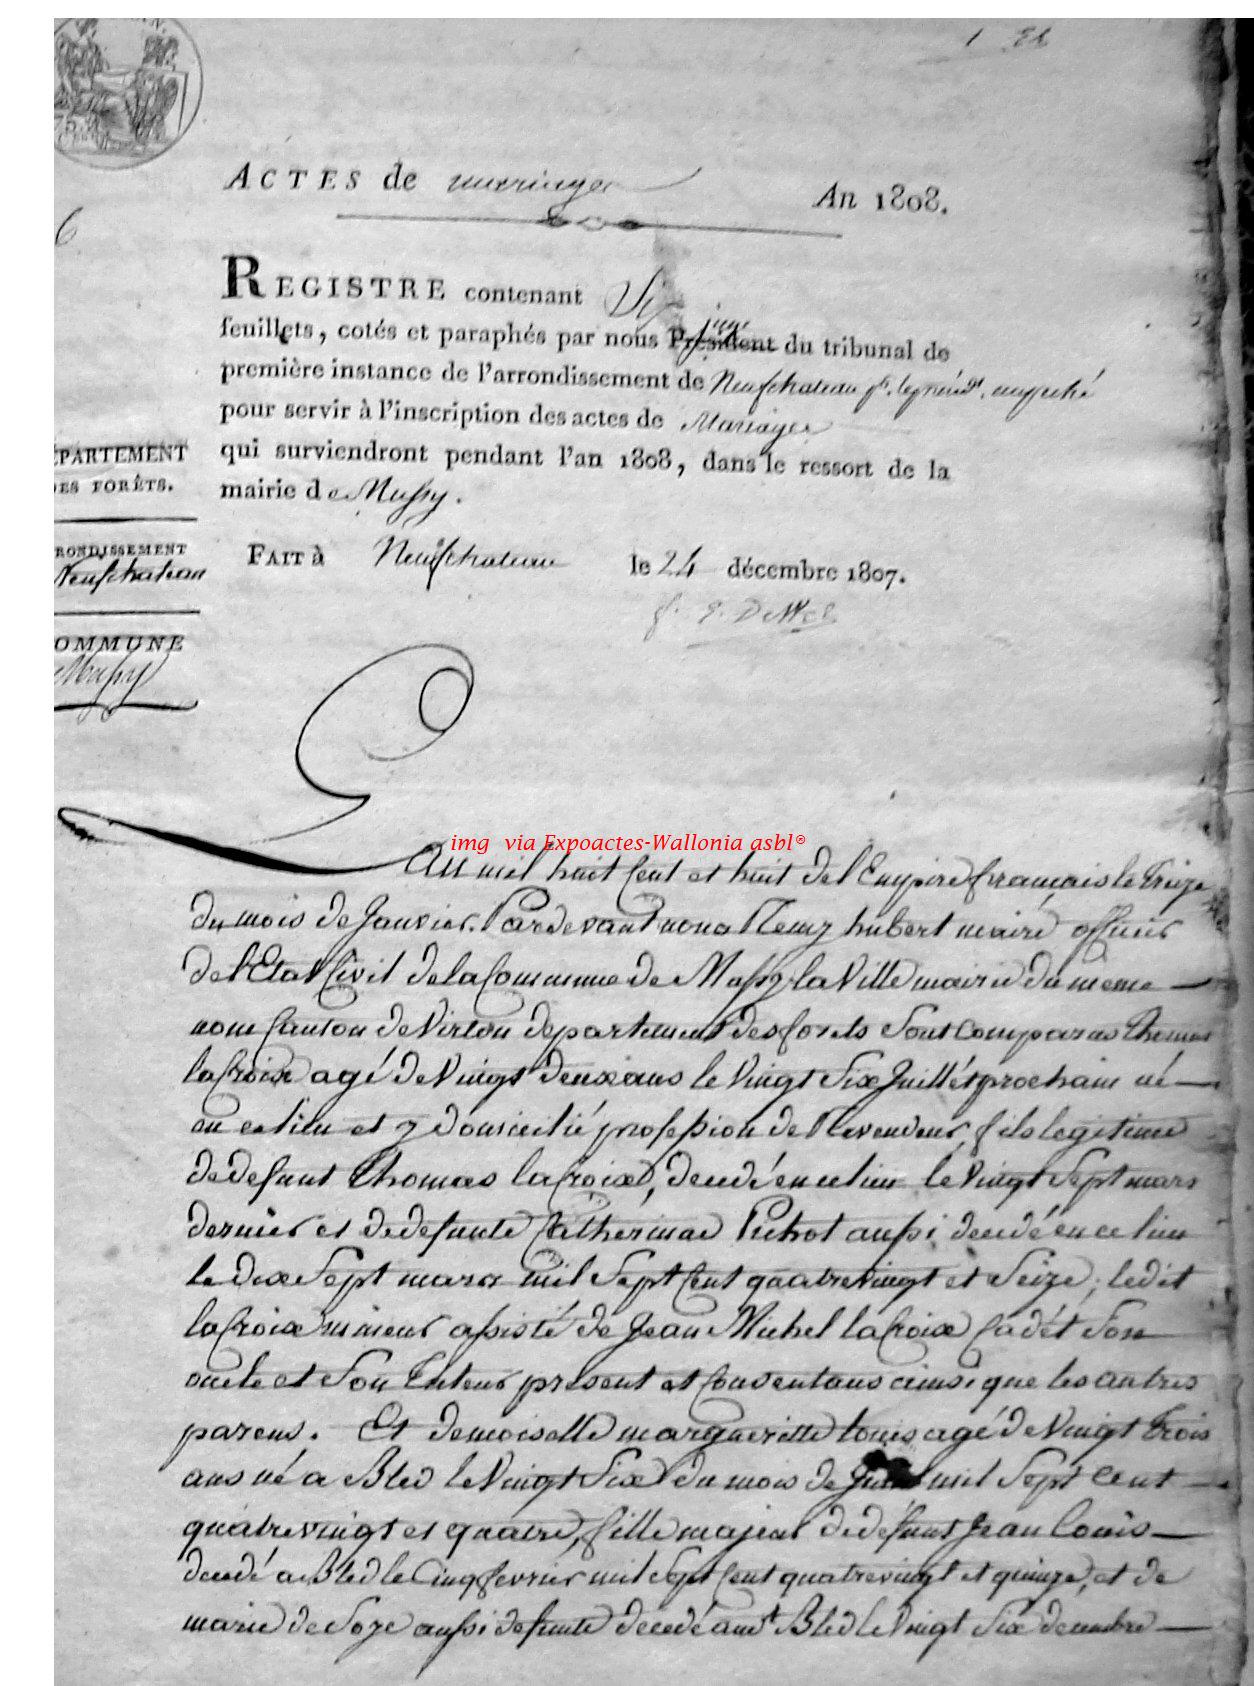 ACTES de mariages
An 1808.
6
REGISTRE contenant Six
feuillets, cotés et paraphés par nous juge Président du tribunal de
première instance de l'arrondissement de Neufchateau
pour servir à l'inscription des actes de Mariages
qui surviendront pendant l'an 1808, dans le ressort de la
mairie de Mussy.
ÉPARTEMENT
DES FORÊTS.
RONDISSEMENT
Neufchateau
FAIT à Neufchateau le 24 décembre 1807.
OMMUNE
Mussy
img via Expoactes-Wallonia asbl®
An mil huit Cent et huit de l'Empire français le treize
du mois de Janvier. Pardevant nous Remy hubert maire officier
de l'Etat Civil de la Commune de Mussy la Ville mairie du meme
nom Canton de Virton departement des forets Sont Comparus thomas
la Croix agé de Vingt deux ans le Vingt Six Juillet prochain né
en ce lieu et y domicilié profession de Revendeur, fils legitime
de defunt thomas la Croix, decedé en ce lieu le Vingt Sept mars
dernier et de defunte Catherinne Pichot aussi decedé en ce lieu
le dix Sept mars mil Sept Cent quatre Vingt et Seize, ledit
la Croix mineur assisté de Jean Michel la Croix Cadét Son
oncle et Son tuteur present et Consentans ainsi que les autres
parens. Et demoiselle margueritte louis agé de Vingt trois
ans né a Bled le Vingt Six du mois de mil Sept Cent
quatre vingt et quatre, fille majeur de defunt Jean louis
decedé a Bled le Cinq fevrier mil Sept Cent quatre vingt et quinze, et de
marie de Soze aussi defunte decedé aud.t Bled le Vingt Six decembre